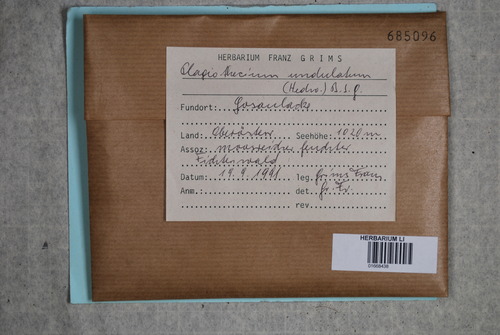 685096
HERBARIUM FRANZ GRIMS
Plagiothecium undulatum
(Hedw.) B.S.G.
Fundort: Gosaulacke
Land: Oberöster Seehöhe: 1020 m
Assoz: moosreicher feuchter
Fichtenwald
Datum: 19.9.1991 leg. Grims Franz
Anm.: det. Gr. Fr.
rev.
HERBARIUM LI